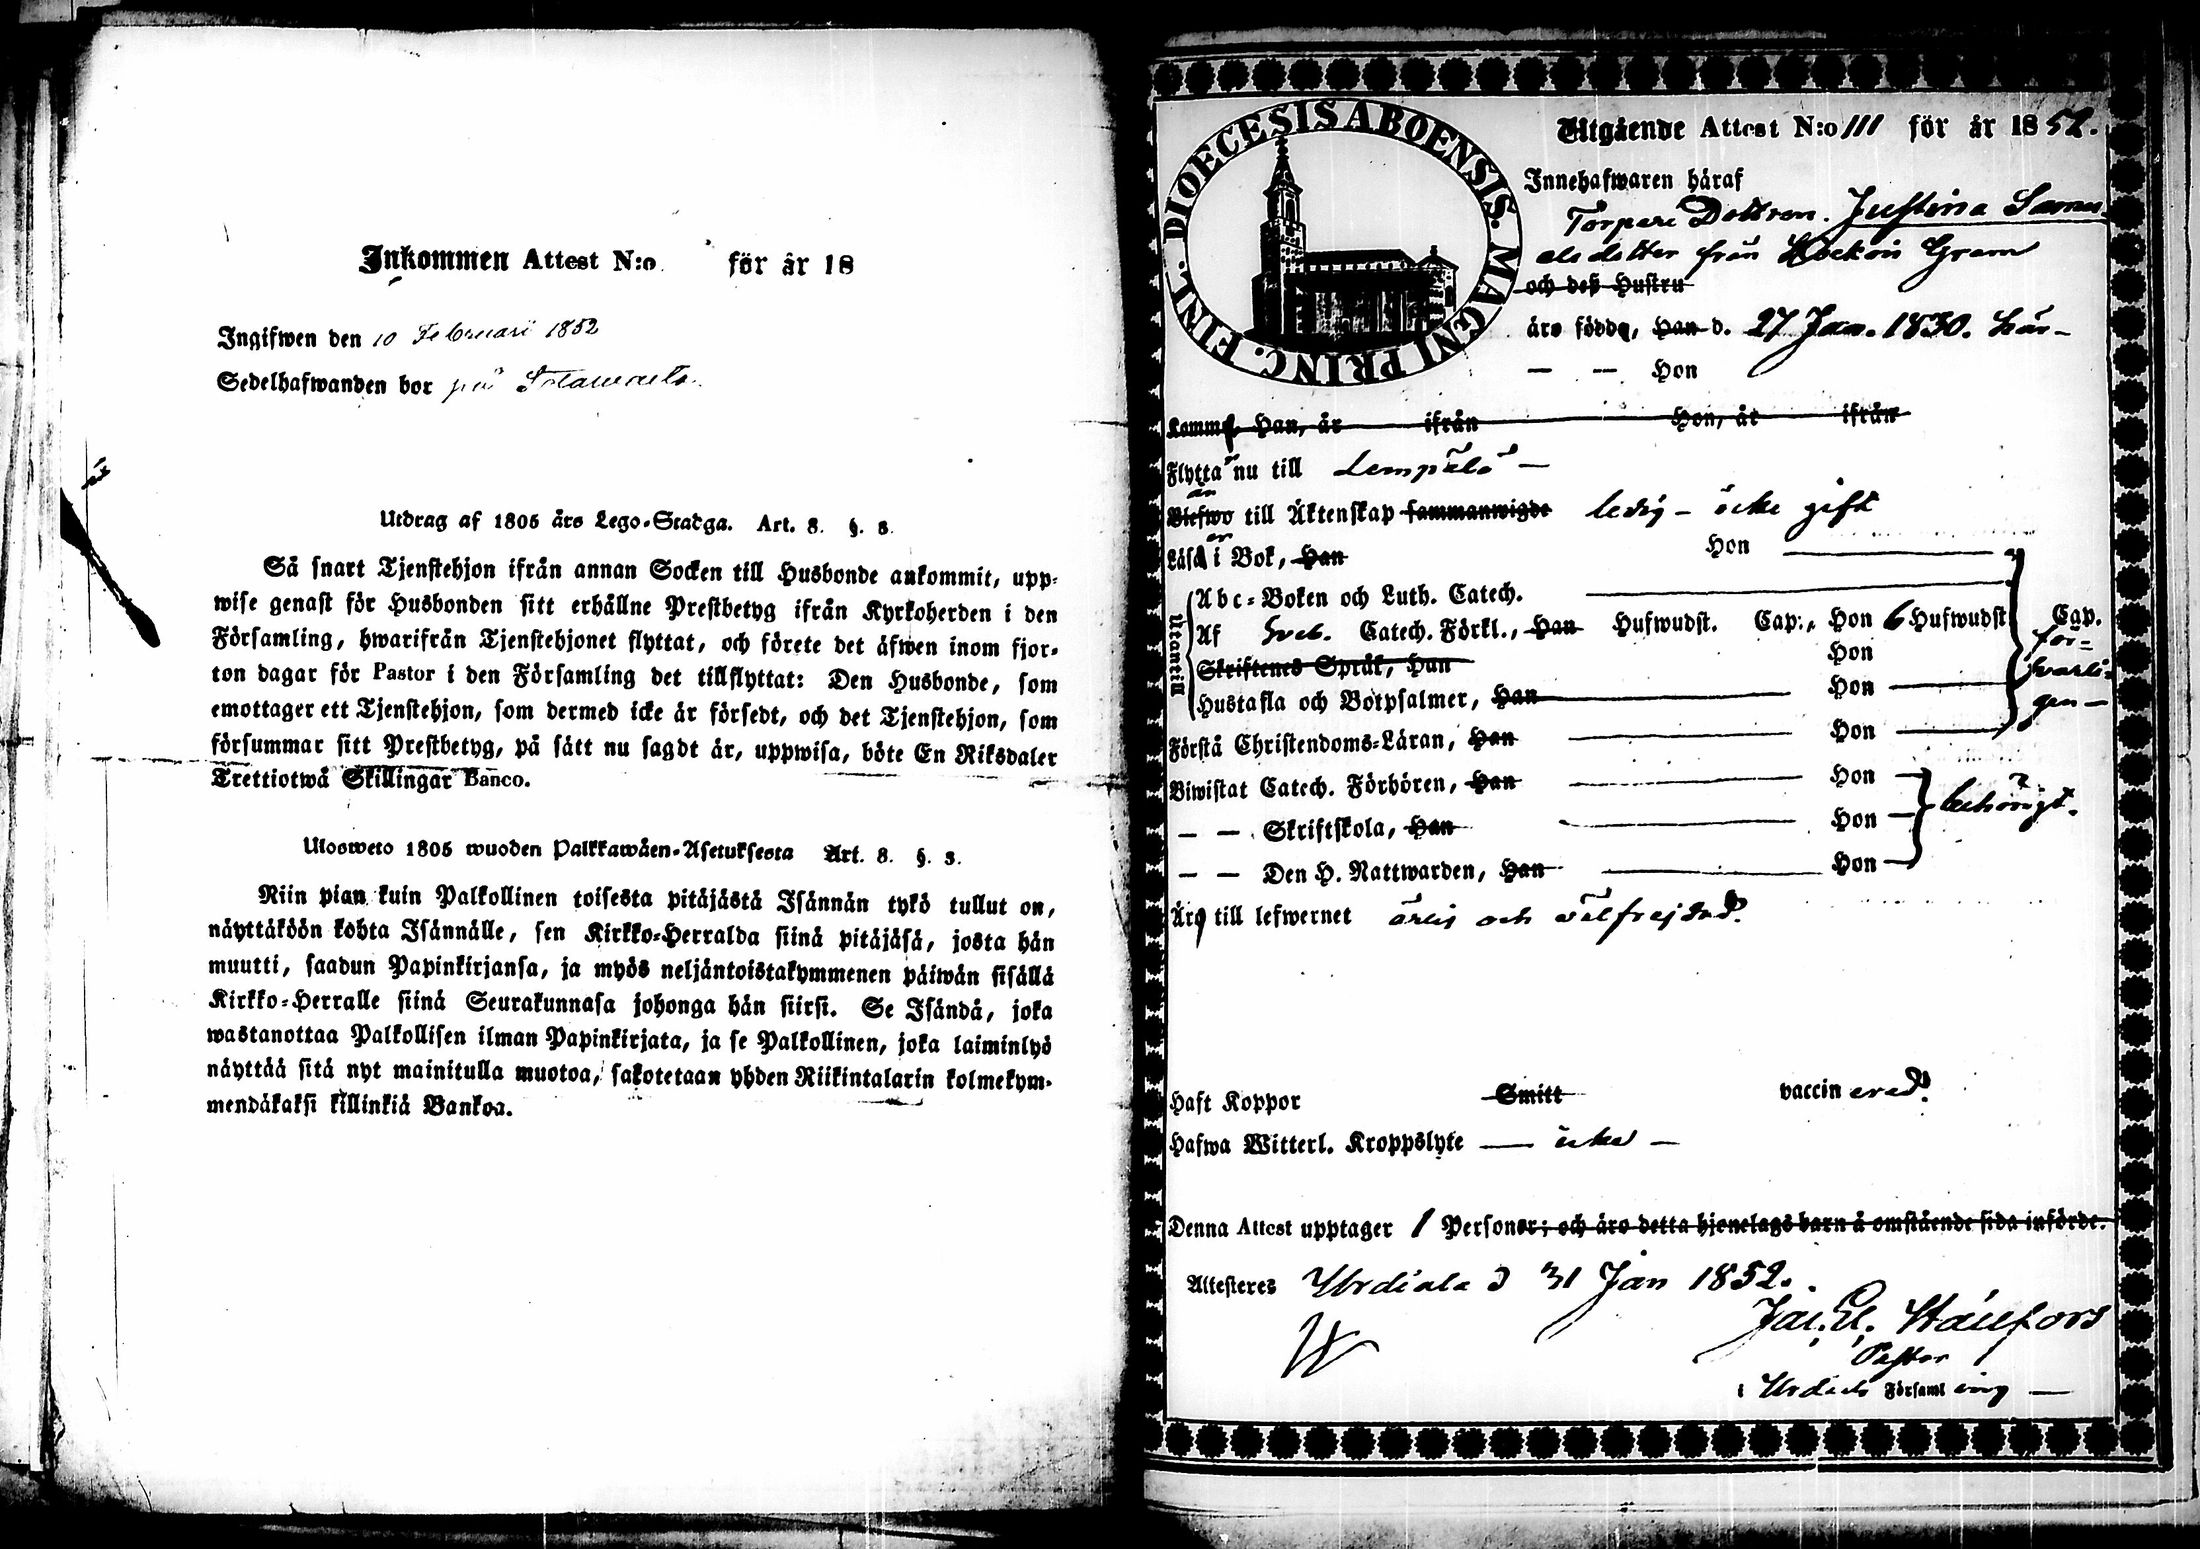 Inkommen Attest N:o för år 18
Ingifwen den 10 Februari 1852
Sedelhafwanden bor på
Utdrag af 1805 års Lego-Stadga. Art. 8. §. 3.
Så snart Tjenstehjon ifrån annan Socken till Husbonde ankommit, upp-
wise genast för Husbonden sitt erhållne Prestbetyg ifrån Kyrkoherden i den
Församling, hwarifrån Tjenstehjonet flyttat, och förete det äfwen inom fjor-
ton dagar för Pastor i den Församling det tillflyttat: Den Husbonde, som
emottager ett Tjenstehjon, som dermed icke är försedt, och det Tjenstehjon, som
försummar sitt Prestbetyg, på sätt nu sagdt är, uppwisa, böte En Riksdaler
Trettiotwå Skillingar Banco.
Ulosweto 1805 wuoden Palkkawäen-Asetuksesta Art. 8. §. 3.
Niin pian kuin Palkollinen toisesta pitäjästä Isännän tykö tullut on,
näyttäköön kohta Isännälle, sen Kirkko-Herralda siinä pitäjäsä, josta hän
muutti, saadun Papinkirjansa, ja myös neljäntoistakymmenen päiwän sisällä
Kirkko-Herralle siinä Seurakunnasa johonga hän siirsi. Se Isändä, joka
wastanottaa Palkollisen ilman Papinkirjata, ja se Palkollinen, joka laiminlyö
näyttää sitä nyt mainitulla muotoa, sakotetaan yhden Riikintalarin kolmekym-
mendäkaksi killinkiä Bankoa.
DIOECESIS ABOENSIS. MAGNI PRINC. FINL.
Utgående Attest N:o 111 för år 1852.
Innehafwaren häraf
Torpare Dottren. Justina Samu-
elsdotter från Gram
och deß Hustru
äro födde, Han d. 27 Jan. 1830. här
— — Hon
Komme, Han, år ifrån Hon, år ifrån
Flyttar nu till Lempälä —
är
Blefwo till Äktenskap sammanwigde ledig – icke gift
Läser i Bok, Han Hon
Utantill
Abc-Boken och Luth. Catech.
Af Sveb. Catech. Förkl., Han Hufwudst. Cap., Hon 6 Hufwudst Cap.
Skriftenes Språk, Han Hon
Hustafla och Botpsalmer, Han Hon
för-
svarli-
gen —
Förstå Christendoms-Läran, Han Hon
Biwistat Catech. Förhören, Han Hon
— — Skriftskola, Han Hon
behörigt.
— — Den H. Nattwarden, Han Hon
Äro till lefwernet ärlig och välfrejdad.
Haft Koppor Smitt vaccinerad.
Hafwa Witterl. Kroppslyte — icke —
Denna Attest upptager 1 Personer; och äro detta hjonelags barn å omstående sida införde.
Attesteres Urdiala d 31 Jan 1852.
Pastor
i Urdiala Församling —